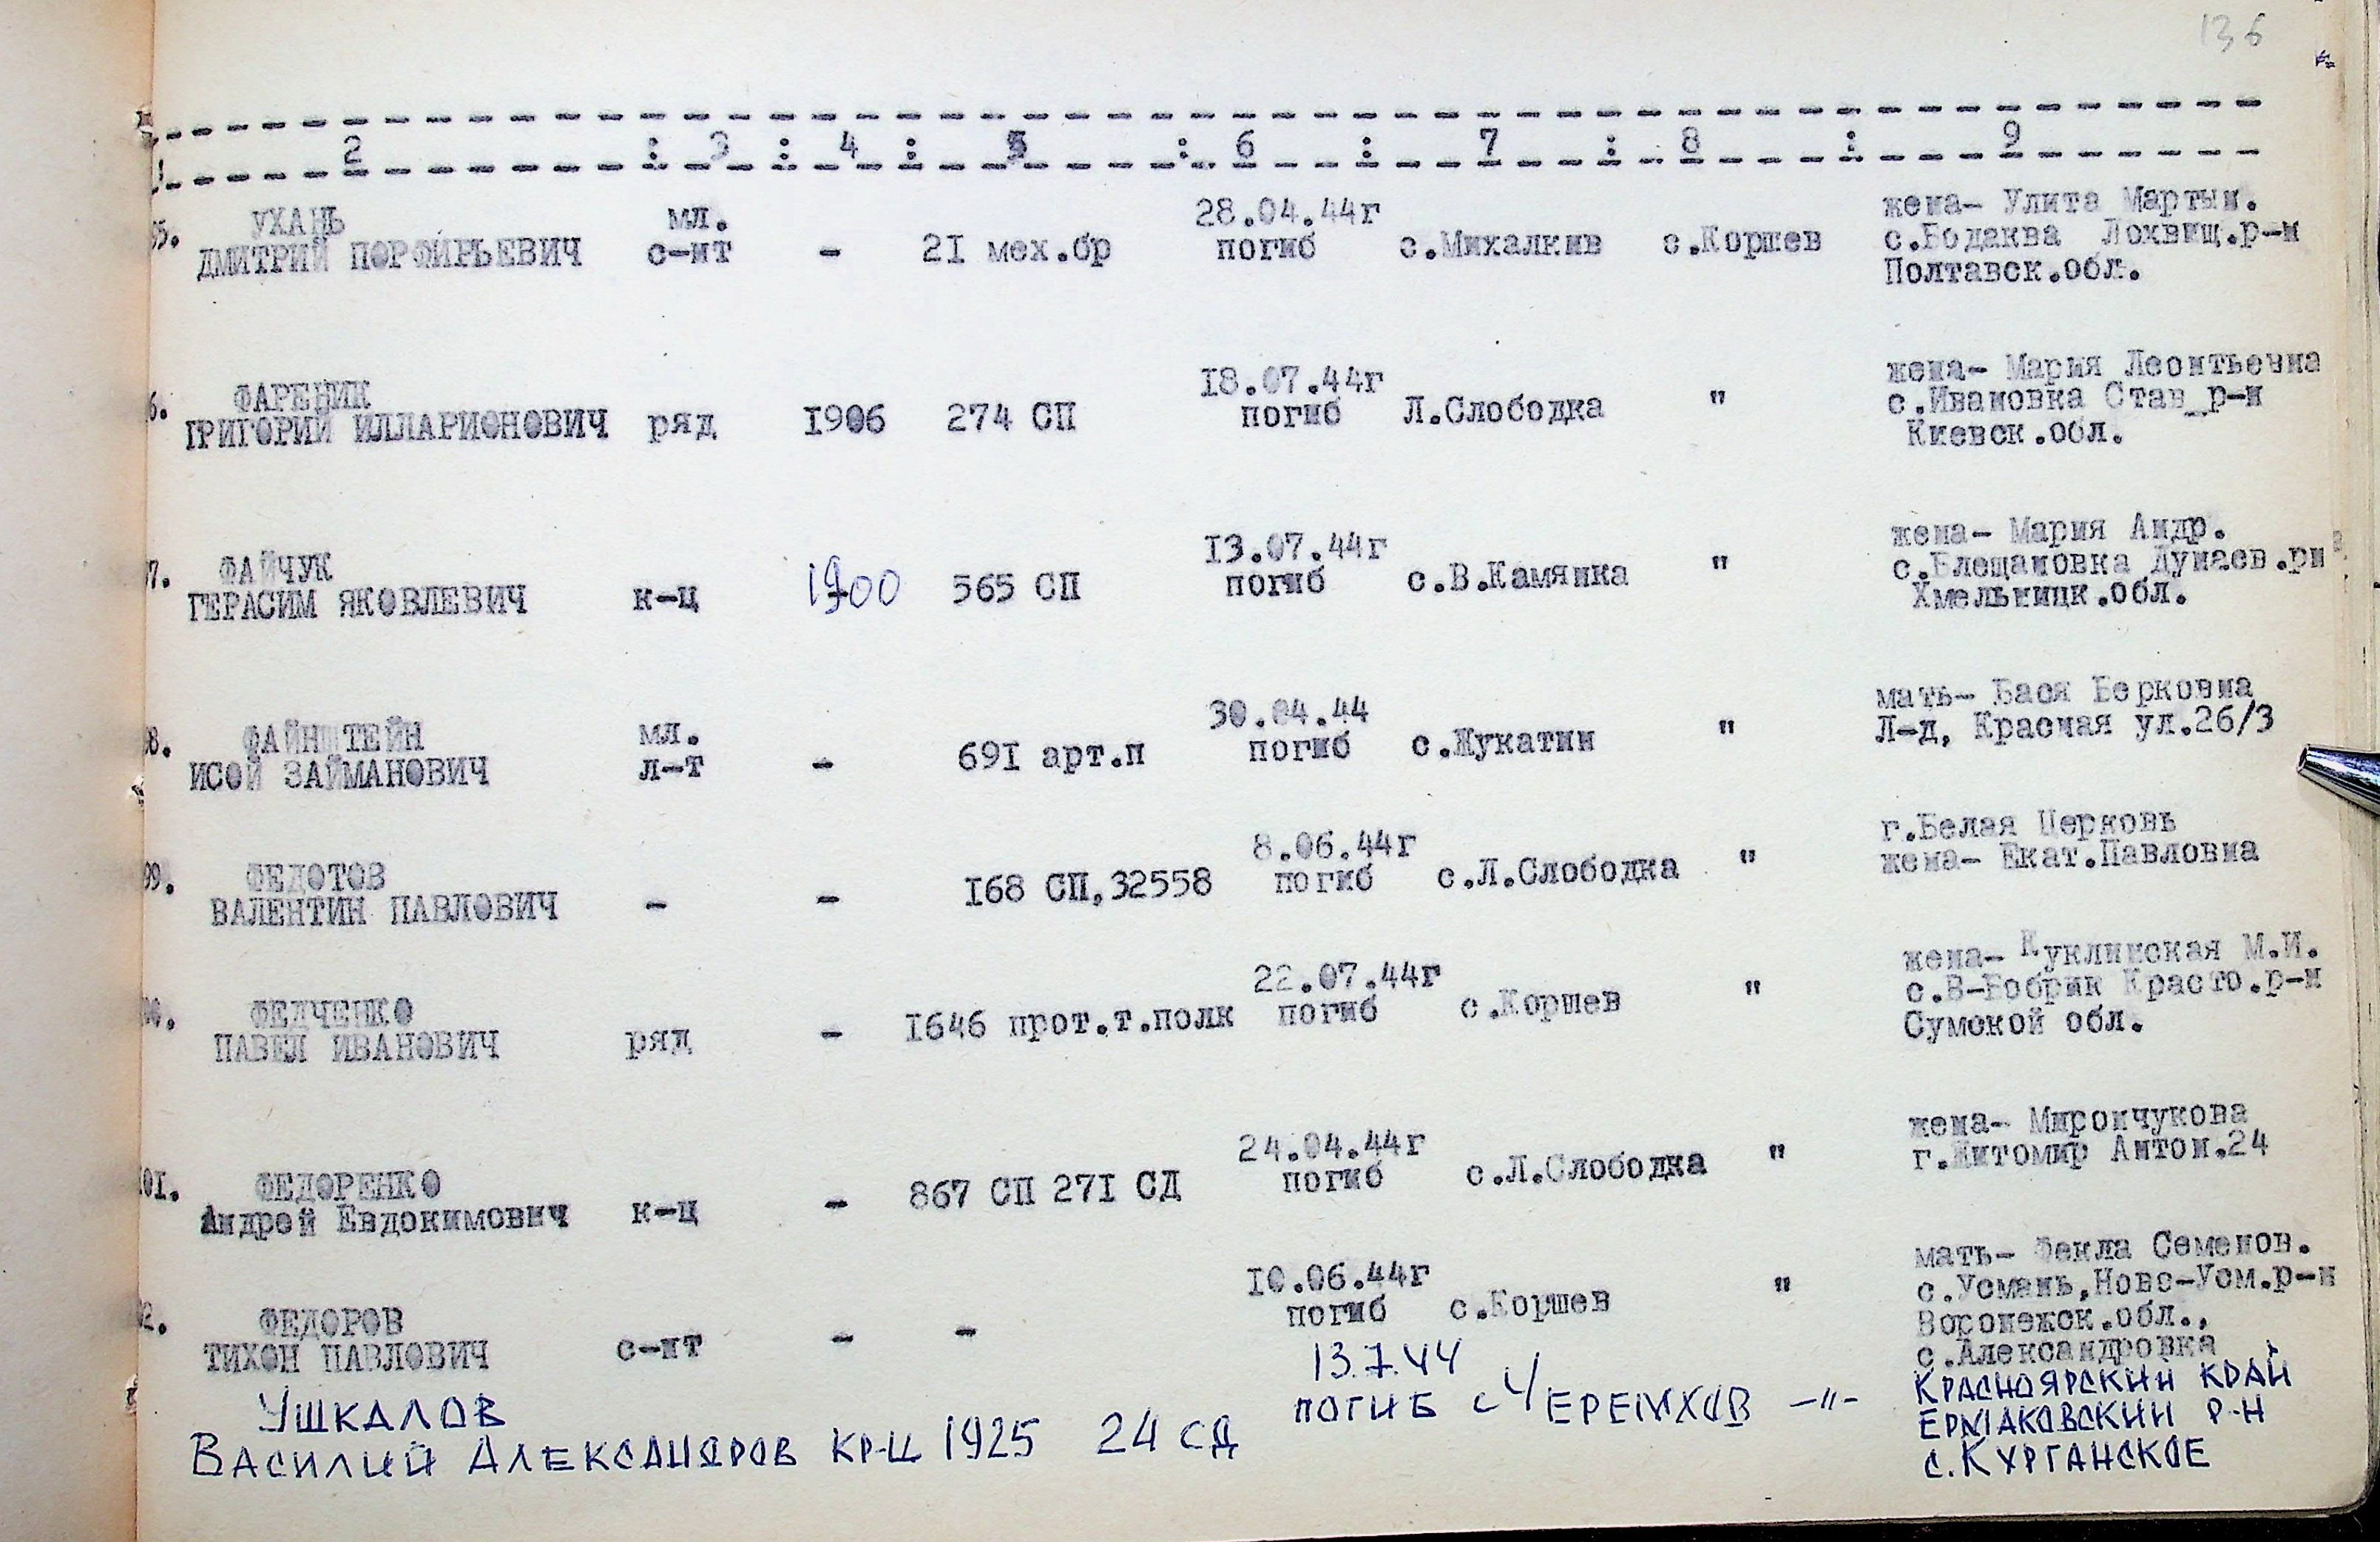 136
2 : 3 : 4 : 5 : 6 : 7 : 8 : 9
95. УХАНЬ мл. 28.04.44г жена- Улита Мартын.
ДМИТРИЙ ПОРФИРЬЕВИЧ с-нт - 21 мех.бр погиб с.Михалкив с.Коршев с.Бодаква Лохвищ.р-н
Полтавск.обл.
6. ФАРЕНИК 18.07.44г жена- Мария Леонтьевна
ГРИГОРИЙ ИЛЛАРИОНОВИЧ ряд 1906 274 СП погиб Л.Слободка " с.Ивановка Став_р-н
Киевск.обл.
97. ФАЙЧУК 13.07.44г жена- Мария Андр.
ГЕРАСИМ ЯКОВЛЕВИЧ к-ц 1900 565 СП погиб с.В.Камянка " с.Блещановка Дунаев.рн
Хмельницк.обл.
98. ФАЙНШТЕЙН мл. 30.04.44 мать- Бася Берковна
ИСОЙ ЗАЙМАНОВИЧ л-т - 691 арт.п погиб с.Жукатин " Л-д, Красная ул.26/3
99. ФЕДОТОВ 8.06.44г г.Белая Церковь
ВАЛЕНТИН ПАВЛОВИЧ - - 168 СП,32558 погиб с.Л.Слободка " жена- Екат.Павловна
00. ФЕДЧЕНКО 22.07.44г жена- Куклинская М.И.
ПАВЕЛ ИВАНОВИЧ ряд - 1646 прот.т.полк погиб с.Коршев " с.В-Бобрик Красто.р-н
Сумской обл.
101. ФЕДОРЕНКО 24.04.44г жена- Мирончукова
Андрей Евдокимович к-ц - 867 СП 271 СД погиб с.Л.Слободка " г.Житомир Антон.24
02. ФЕДОРОВ 10.06.44г мать- Фекла Семенов.
ТИХОН ПАВЛОВИЧ с-нт - - погиб с.Коршев " с.Усмань,Ново-Усм.р-н
Воронежск.обл.,
с.Александровка
УШКАЛОВ 13.7.44 КРАСНОЯРСКИЙ КРАЙ
ВАСИЛИЙ АЛЕКСАНДРОВ КР-Ц 1925 24 СД ПОГИБ с ЧЕРЕМХОВ -"- ЕРМАКОВСКИЙ Р-Н
с. КУРГАНСКОЕ